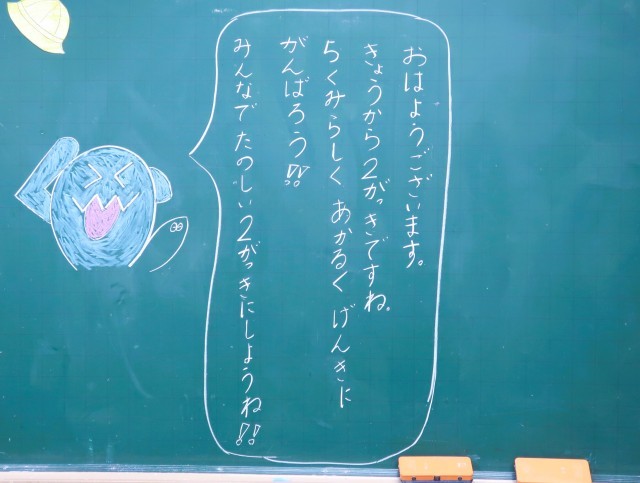 おはようございます。
きょうから2がっきですね。
らくみらしく あかるく げんきに
がんばろう!!
みんなで たのしい2がっきにしようね!!